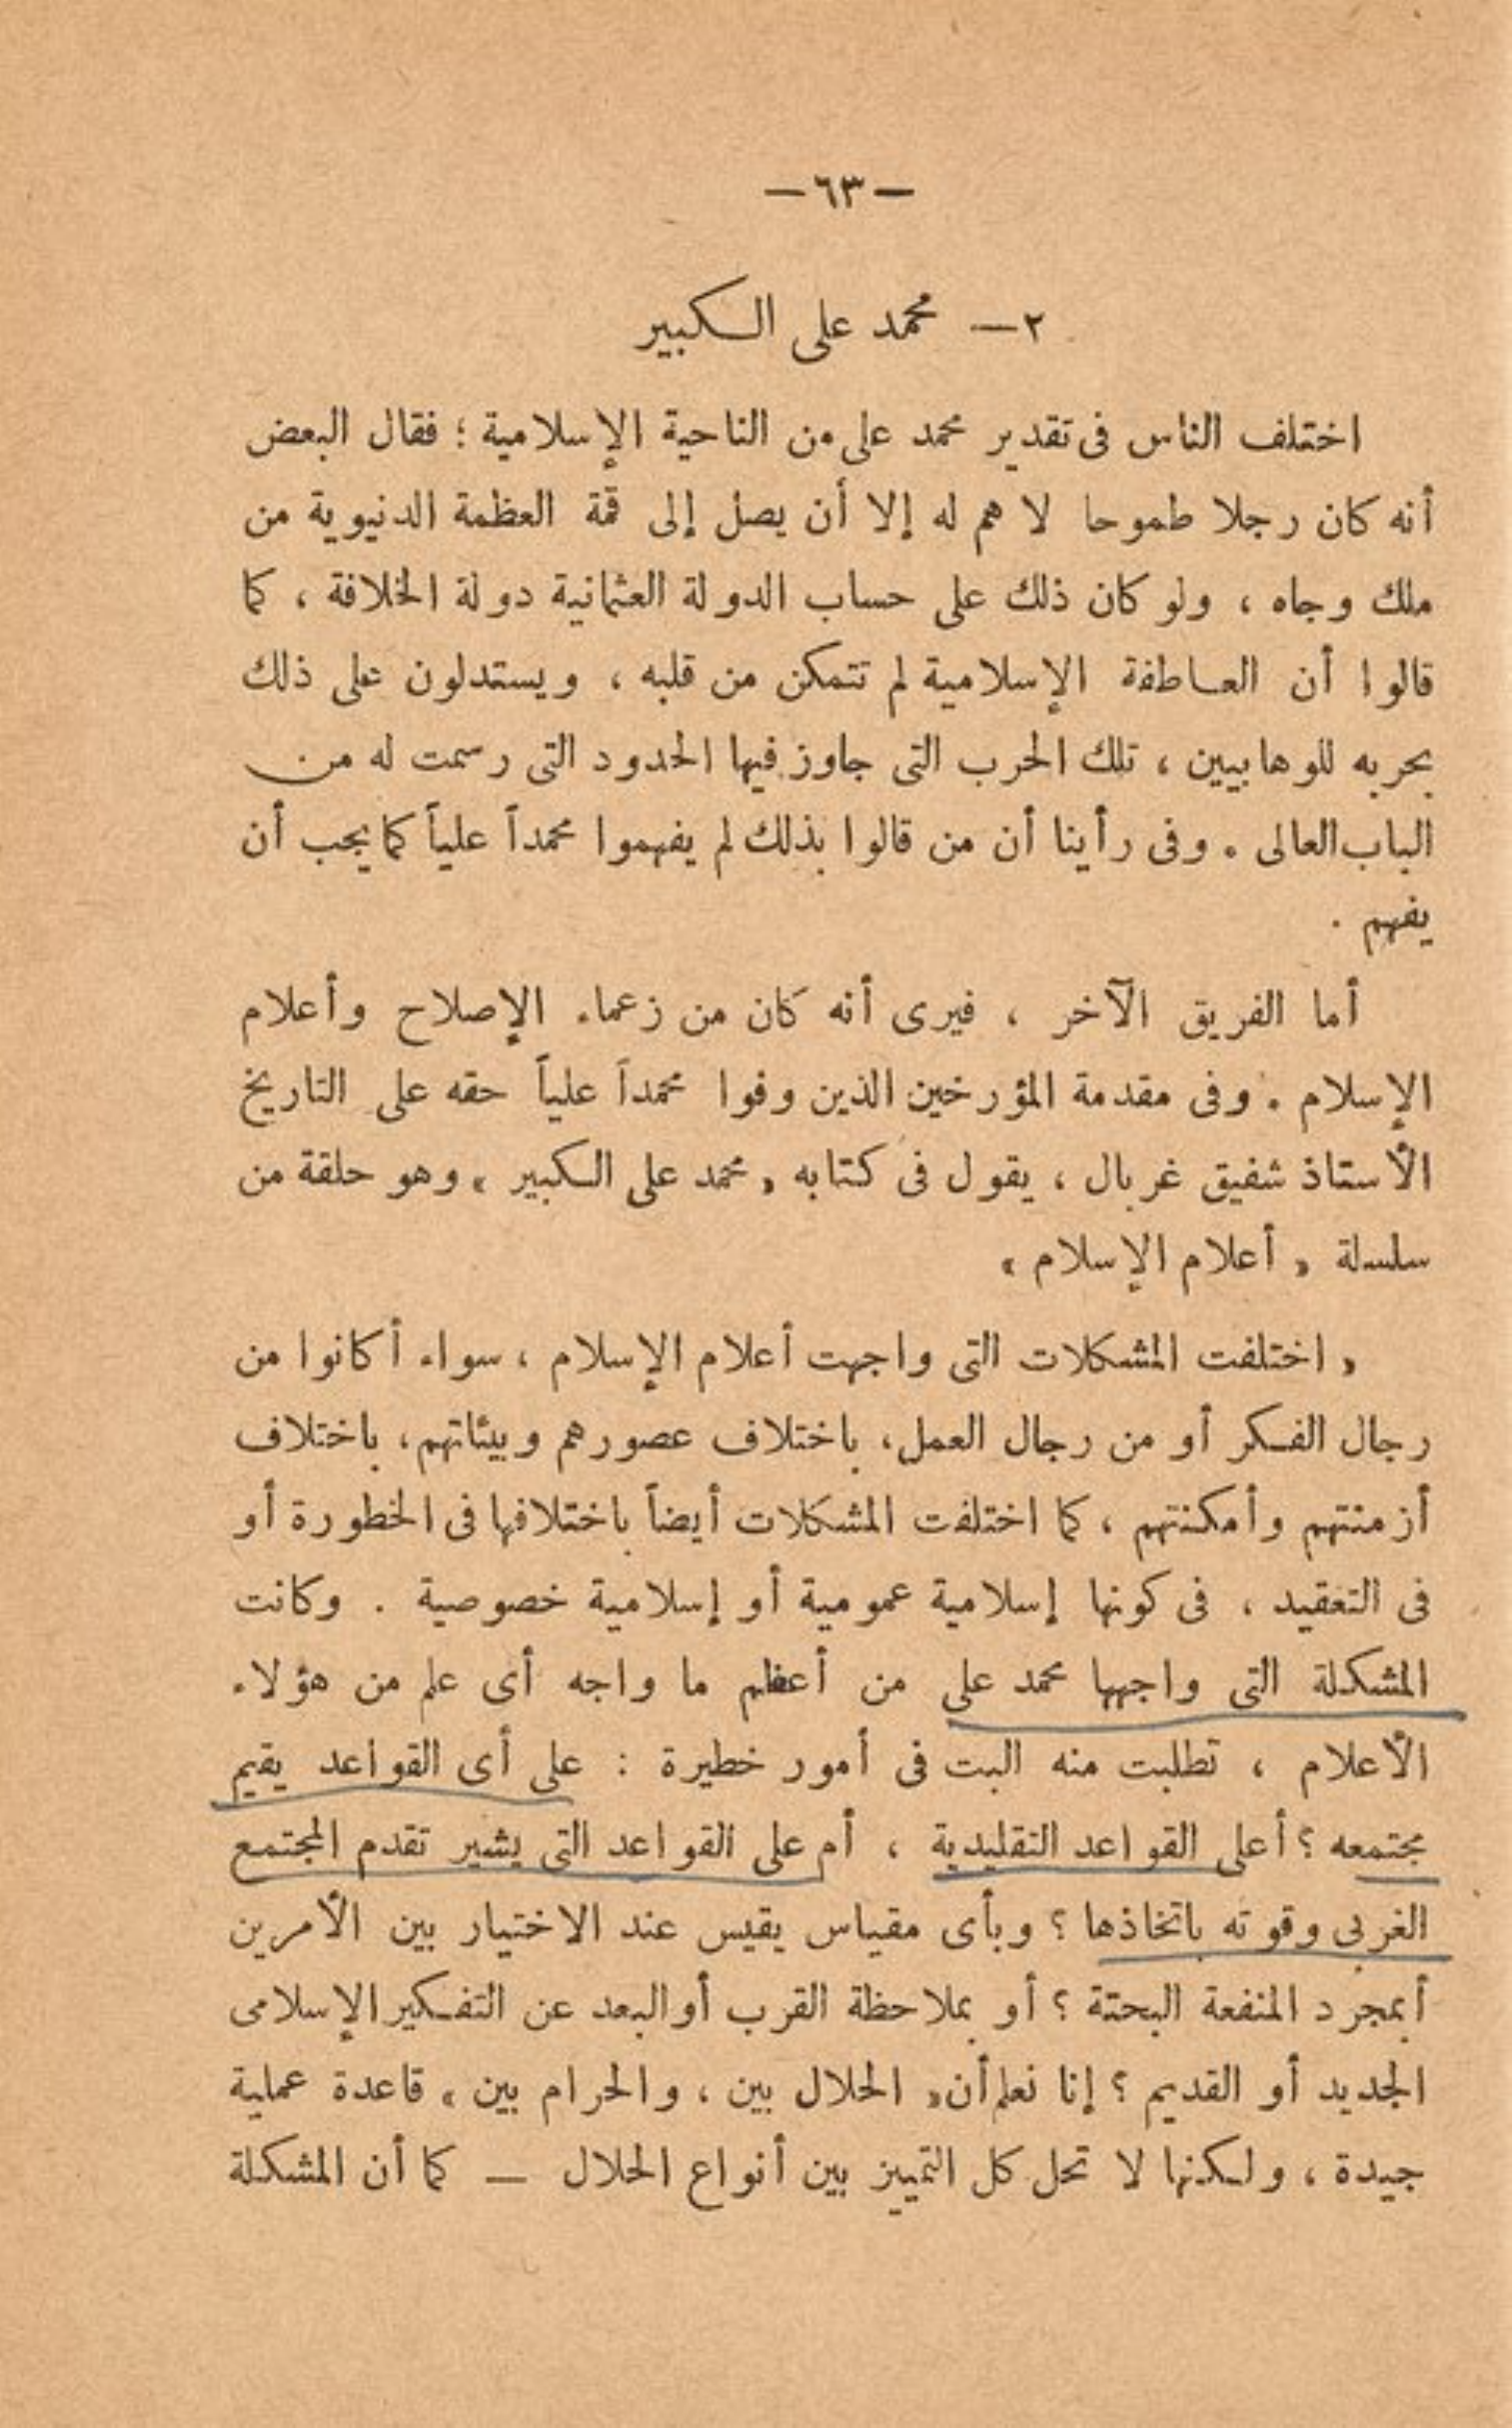 — ٦٣ —
٢ — محمد على الكبير
اختلف الناس فى تقدير محمد على من الناحية الإسلامية ؛ فقال البعض
أنه كان رجلا طموحا لا هم له إلا أن يصل إلى قمة العظمة الدنيوية من
ملك وجاه ، ولو كان ذلك على حساب الدولة العثمانية دولة الخلافة ، كما
قالوا أن العاطفة الإسلامية لم تتمكن من قلبه ، ويستدلون على ذلك
بحربه للوهابيين ، تلك الحرب التى جاوز فيها الحدود التى رسمت له من
الباب العالى . وفى رأينا أن من قالوا بذلك لم يفهموا محمداً علياً كما يجب أن
يفهم .
أما الفريق الآخر ، فيرى أنه كان من زعماء الإصلاح وأعلام
الإسلام . وفى مقدمة المؤرخين الذين وفوا محمداً علياً حقه على التاريخ
الأستاذ شفيق غربال ، يقول فى كتابه « محمد على الكبير » وهو حلقة من
سلسلة « أعلام الإسلام »
« اختلفت المشكلات التى واجهت أعلام الإسلام ، سواء أكانوا من
رجال الفكر أو من رجال العمل ، باختلاف عصورهم وبيئاتهم ، باختلاف
أزمنتهم وأمكنتهم ، كما اختلفت المشكلات أيضاً باختلافها فى الخطورة أو
فى التعقيد ، فى كونها إسلامية عمومية أو إسلامية خصوصية . وكانت
المشكلة التى واجهها محمد على من أعظم ما واجه أى علم من هؤلاء
الأعلام ، تطلبت منه البت فى أمور خطيرة : على أى القواعد يقيم
مجتمعه ؟ أعلى القواعد التقليدية ، أم على القواعد التى يشير تقدم المجتمع
الغربى وقوته باتخاذها ؟ وبأى مقياس يقيس عند الاختيار بين الأمرين
أبمجرد المنفعة البحتة ؟ أو بملاحظة القرب أو البعد عن التفكير الإسلامى
الجديد أو القديم ؟ إنا نعلم أن « الحلال بين ، والحرام بين » قاعدة عملية
جيدة ، ولكنها لا تحل كل التمييز بين أنواع الحلال — كما أن المشكلة